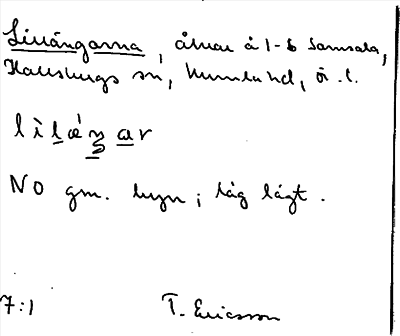 Lillängarna, åkrar å 1-6 Samsala,
Hallsbergs sn, Kumla hd, Ör. l.
lìlæ´ŋar
NO gm. byn; låg lågt.
7:1 T. Ericsson